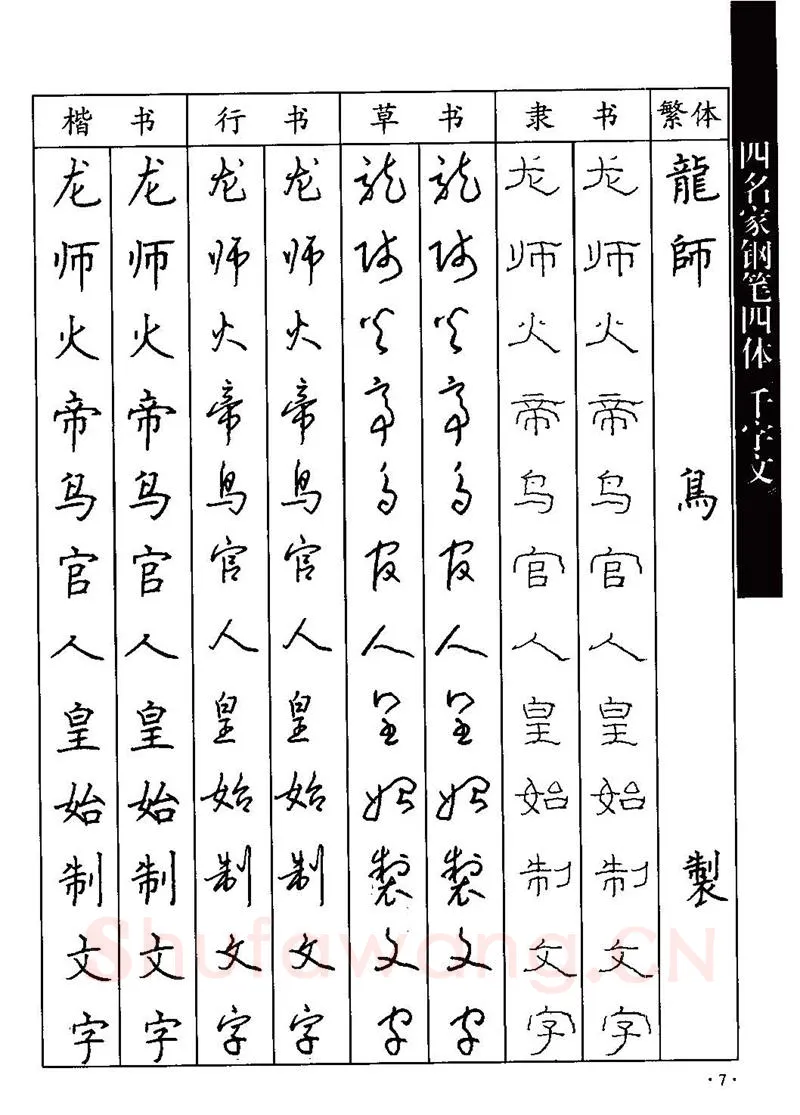 楷书
龙师火帝鸟官人皇始制文字
龙师火帝鸟官人皇始制文字
行书
龙师火帝鸟官人皇始制文字
龙师火帝鸟官人皇始制文字
草书
龍師火帝鳥官人皇始製文字
龍師火帝鳥官人皇始製文字
隶书
龙师火帝鸟官人皇始制文字
龙师火帝鸟官人皇始制文字
繁体
龍師 鳥 製
四名家钢笔四体 千字文
·7·
Shufawang.CN